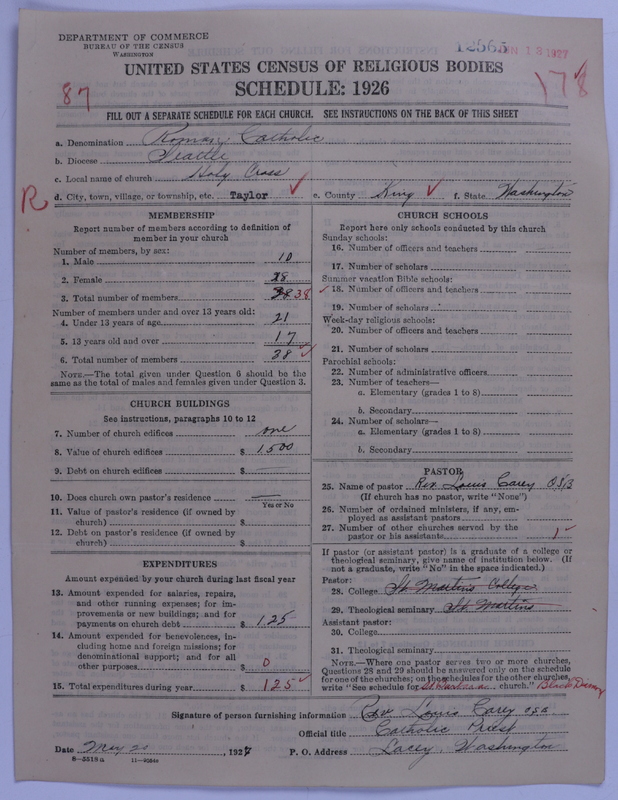 DEPARTMENT OF COMMERCE
BUREAU OF THE CENSUS
WASHINGTON
12565 JUN 13 1927
UNITED STATES CENSUS OF RELIGIOUS BODIES
SCHEDULE: 1926
87
178
FILL OUT A SEPARATE SCHEDULE FOR EACH CHURCH. SEE INSTRUCTIONS ON THE BACK OF THIS SHEET
a. Denomination Roman Catholic
b. Diocese Seattle
c. Local name of church Holy Cross
R
d. City, town, village, or township, etc. Taylor e. County King f. State Washington
MEMBERSHIP
Report number of members according to definition of
member in your church
Number of members, by sex:
1. Male 10
2. Female 28
3. Total number of members 38 38
Number of members under and over 13 years old:
4. Under 13 years of age 21
5. 13 years old and over 17
6. Total number of members 38
NOTE.—The total given under Question 6 should be the
same as the total of males and females given under Question 3.
CHURCH BUILDINGS
See instructions, paragraphs 10 to 12
7. Number of church edifices one
8. Value of church edifices $ 1500
9. Debt on church edifices $
10. Does church own pastor's residence
Yes or No
11. Value of pastor's residence (if owned by
church) $
12. Debt on pastor's residence (if owned by
church) $
EXPENDITURES
Amount expended by your church during last fiscal year
13. Amount expended for salaries, repairs,
and other running expenses; for im-
provements or new buildings; and for
payments on church debt $ 125
14. Amount expended for benevolences, in-
cluding home and foreign missions; for
denominational support; and for all
other purposes $ 0
15. Total expenditures during year $ 125
CHURCH SCHOOLS
Report here only schools conducted by this church
Sunday schools:
16. Number of officers and teachers
17. Number of scholars
Summer vacation Bible schools:
18. Number of officers and teachers
19. Number of scholars
Week-day religious schools:
20. Number of officers and teachers
21. Number of scholars
Parochial schools:
22. Number of administrative officers
23. Number of teachers—
a. Elementary (grades 1 to 8)
b. Secondary
24. Number of scholars—
a. Elementary (grades 1 to 8)
b. Secondary
PASTOR
25. Name of pastor Rev. Louis Carey OSB
(If church has no pastor, write "None")
26. Number of ordained ministers, if any, em-
ployed as assistant pastors
27. Number of other churches served by the
pastor or his assistants 1
If pastor (or assistant pastor) is a graduate of a college or
theological seminary, give name of institution below. (If
not a graduate, write "No" in the space indicated.)
Pastor:
28. College St. Martins College
29. Theological seminary St. Martins
Assistant pastor:
30. College
31. Theological seminary
NOTE.—Where one pastor serves two or more churches,
Questions 28 and 29 should be answered only on the schedule
for one of the churches; on the schedules for the other churches,
write "See schedule for St. Barbara church." Black Diamond
Signature of person furnishing information Rev Louis Carey OSB
Official title Catholic Priest
Date May 20, 1927 P. O. Address Lacey, Washington
8-5518 a 11-9064a